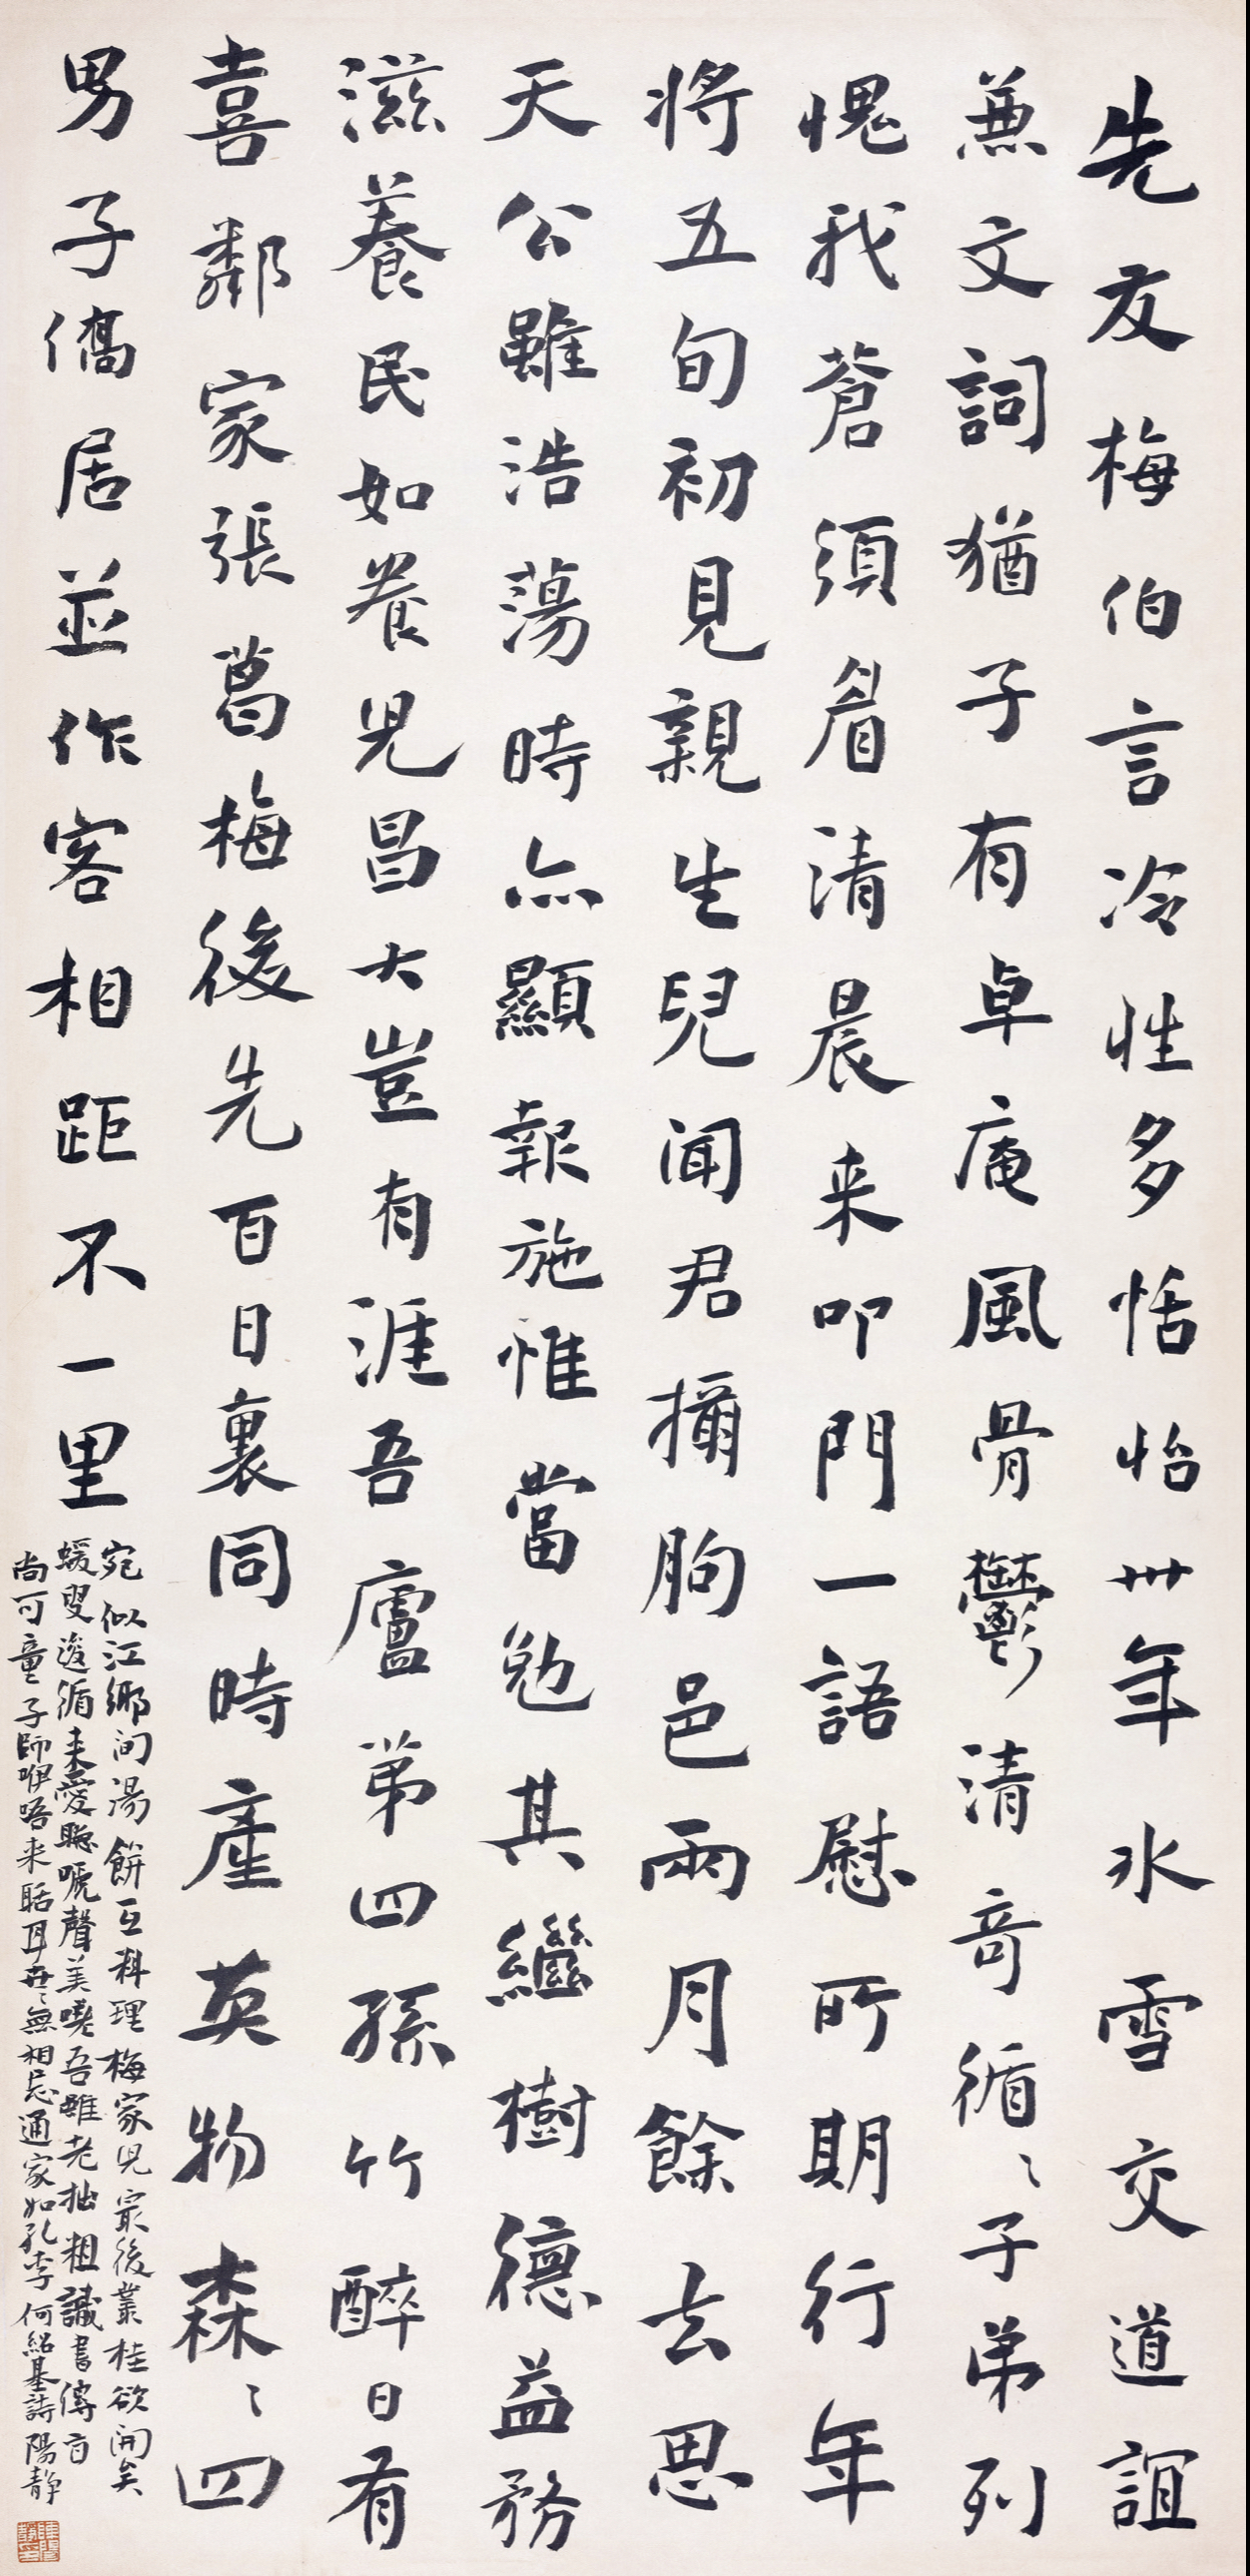 先友梅伯言冷性多恬怡卅年冰雪交道誼
兼文詞猶子有卓庵風骨鬱清奇循〻子弟列
愧我蒼須眉清晨来叩門一語慰所期行年
將五旬初見親生兒聞君攝朐邑兩月餘去思
天公雖浩蕩時亦顯報施惟當勉其繼樹德益務
滋養民如養兒昌大豈有涯吾廬弟四孫竹醉日有
喜鄰家張葛梅後先百日裏同時產英物森〻四
男子僑居並作客相距不一里
宛似江鄉间湯餅互料理梅家兒最後叢桂欲開矣
蝯叟逡循来愛聽嗁聲美嘵吾雖老拙粗識書傳旨
尚可童子師咿唔来聒耳世〻無相忘通家如孔李何紹基詩陽静